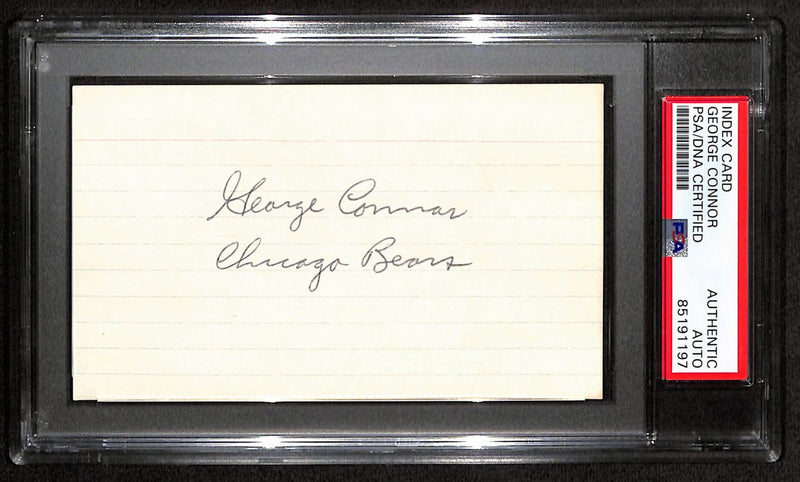 George Connor
Chicago Bears
INDEX CARD
GEORGE CONNOR
PSA/DNA CERTIFIED
PSA
AUTHENTIC
AUTO
85191197